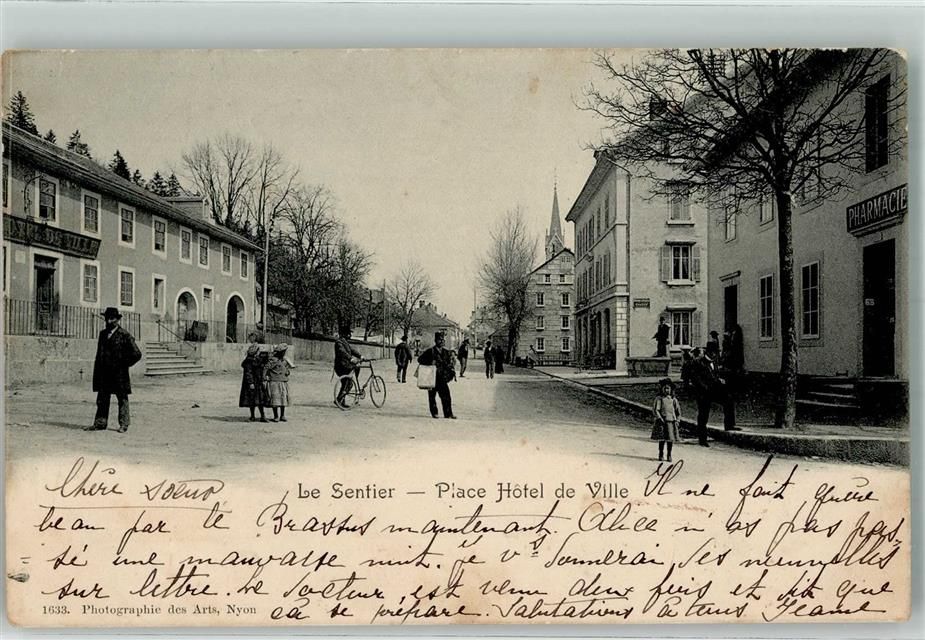 HÔTEL DE VILLE
PHARMACIE
Le Sentier — Place Hôtel de Ville
Chère soeur Il ne fait guère
beau par le Brassus maintenant. Alice n'as pas pas-
sé une mauvaise nuit. je vs donnerai des nouvelles
sur lettre. Le docteur, est venu deux fois et dit que
ça se prépare. Salutations à tous Jeanne
1633. Photographie des Arts, Nyon